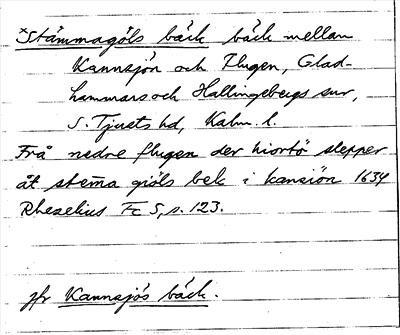 *Stämmagöls bäck bäck mellan
Kannsjön och Flugen, Glad-
hammars och Hallingebergs snr,
S. Tjusts hd, Kalm. l.
Frå nedre flugen der hiortö slepper
åt stem̄a giöls bek i kansiön 1634
Rhezelius Fc 5, s. 123.
jfr Kannsjös bäck.